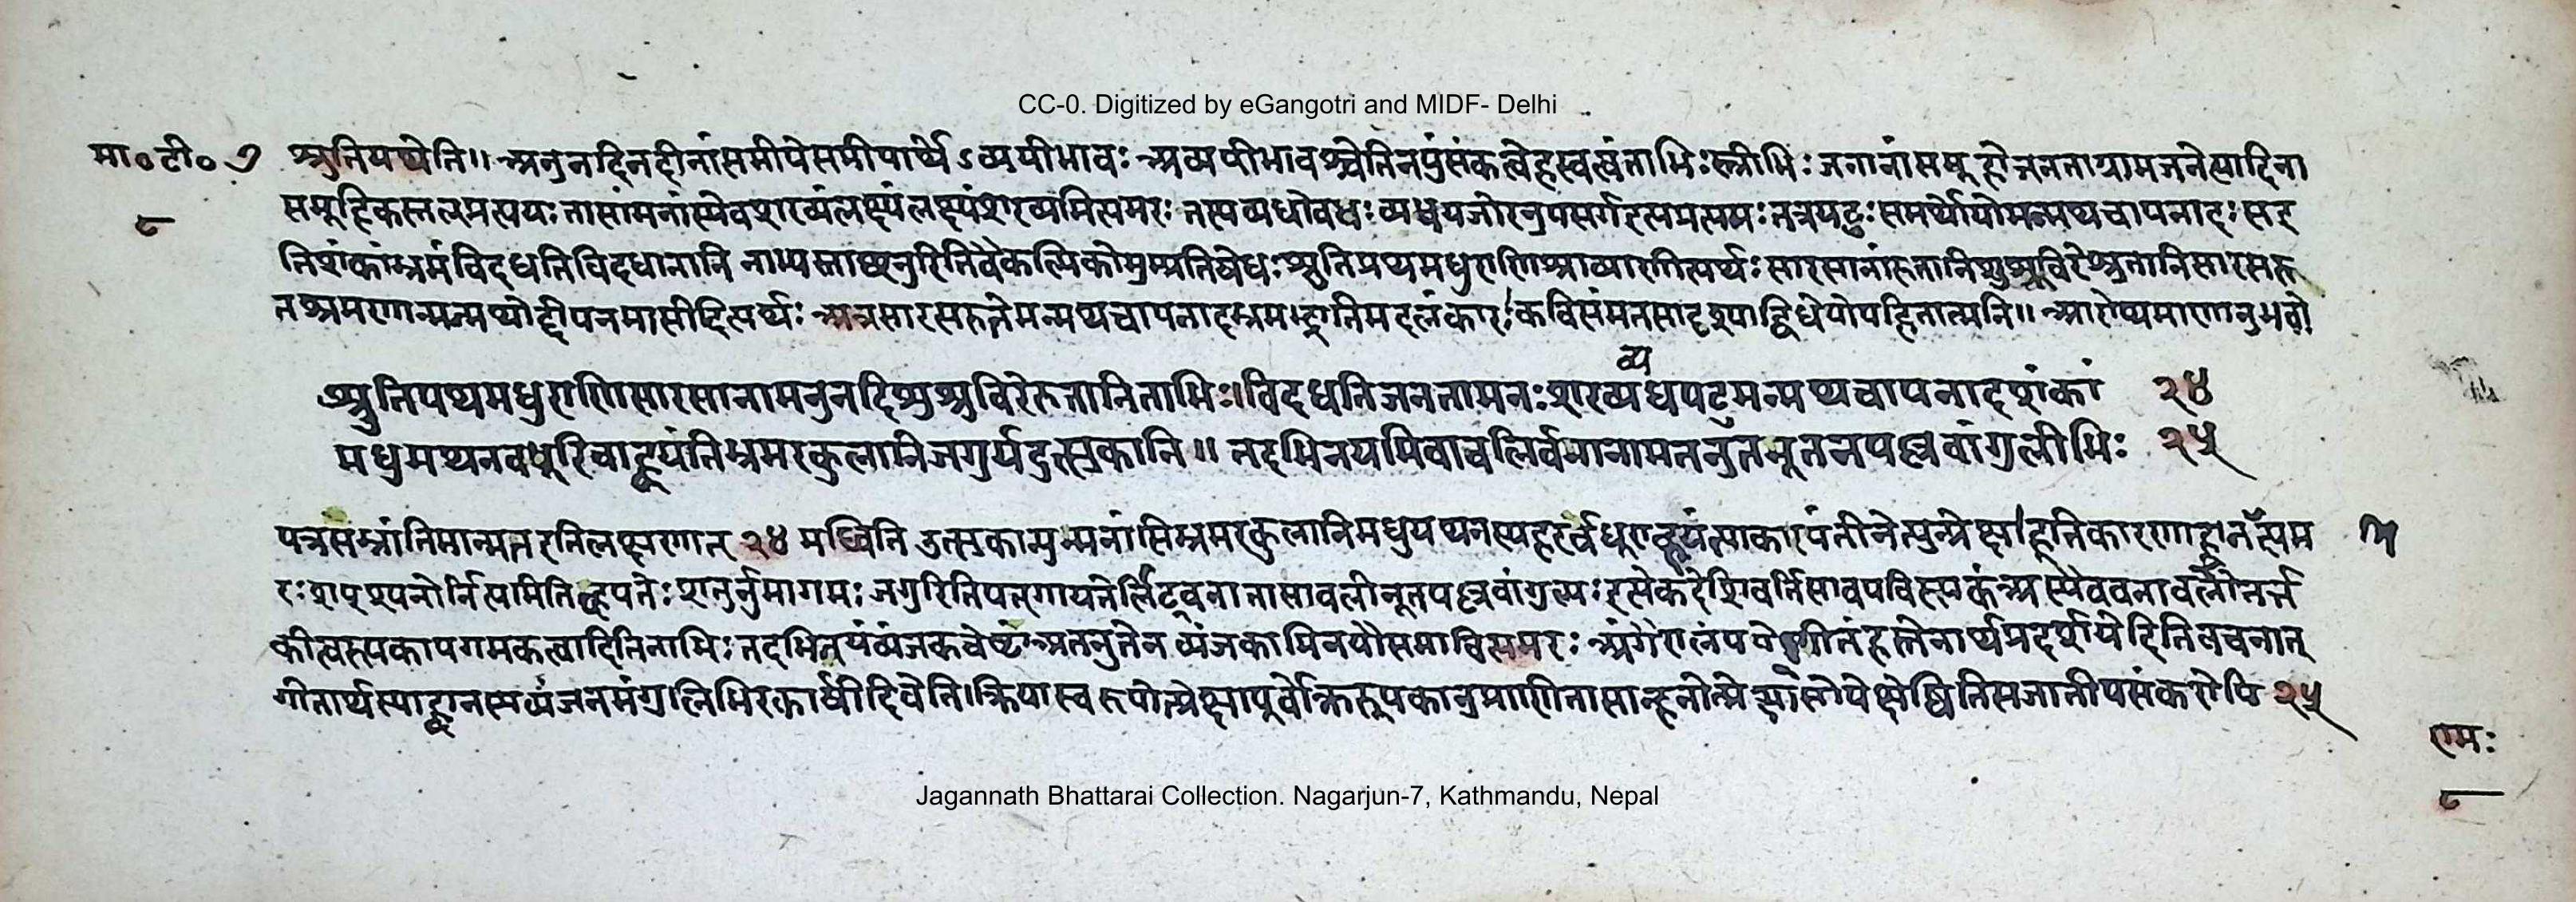 CC-0. Digitized by eGangotri and MIDF- Delhi
मा० टी० ७ श्रुतिपथेति॥ अनुनदिनदीनांसमीपेसमीपार्थेऽव्ययीभावः अव्ययीभावश्चेतिनपुंसकत्वेह्रस्वत्वंताभिःस्त्रीभिः जनानांसमूहोजनताग्रामजनेत्यादिना
८ समूहिकस्तल्प्रत्ययः तासांमनांस्येवशरव्यंलक्ष्यंलक्ष्यंशरव्यमित्यमरः तस्यव्यधोवेधः व्यधजपोरनुपसर्गइत्यप्प्रत्ययः तत्रपटुः समर्थोयोमन्मथचापनादः सइ
तिशंकांभ्रमंविदधतिविदधानानि नाभ्यस्ताच्छतुरितिवैकल्पिकोनुम्प्रतिषेधः श्रुतिपथमधुराणिश्राव्याणीत्यर्थः सारसानांरुतानिशुश्रुविरेश्रुतानिसारसरु
तश्रमरणान्मन्मथोद्दीपनमासीदित्यर्थः अत्रसारसरुतेमन्मथचापनादभ्रमाद्भ्रांतिमदलंकारः कविसंमतसादृश्याद्विधेयोपहितात्मनि॥ आरोप्यमाणानुभवो
व्य
श्रुतिपथमधुराणिसारसानामनुनदिशुश्रुविरेरुतानिताभिः॥विदधतिजनतामनःशरव्यधपटुमन्मथचापनादशंकां २४
मधुमथनवधूरिवाह्वयंतिभ्रमरकुलानिजगुर्यदुत्सुकानि॥ तदभिनयमिवावलिर्वनानामतनुतनूतनपल्लवांगुलीभिः २५
यत्रसभ्रांतिमान्मतइतिलक्षणात् २४ मध्विति उत्सुकान्युन्मनांसिभ्रमरकुलानिमधुमथनस्यहरेर्वधूराह्वयंत्याकारयंतीवेत्युत्प्रेक्षा
रः शप्श्यनोर्नित्यमिति शतुर्नुमागमः जगुरिति
कीत्वस्य तदभिनयंव्यंजकचेष्टां अतनुतेव व्यंजकाभिनयौसमावित्यमरः अंगैरालंपयेद्गीतंहस्तेनार्थंप्रदर्शयेदितिवचनात्
गीतार्थस्याह्वानस्यव्यंजनमंगुलिभिरकार्षीदिवेति।क्रियास्वरूपोत्प्रेक्षापूर्वोक्तरूपकानुप्राणितासाचाह्वानोत्प्रेक्षासापेक्षेतिसजातीयसंकरोपि २५
रामः
८
Jagannath Bhattarai Collection. Nagarjun-7, Kathmandu, Nepal